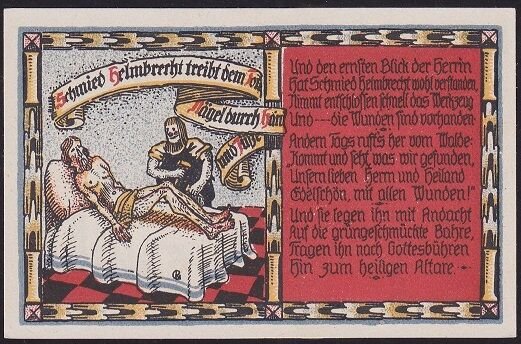 Schmied Helmbrecht treibt dem To
Nägel durch Hän
und Füße
Und den ernsten Blick der Herrin
Hat Schmied Helmbrecht wohl verstanden,
Nimmt entschlossen schnell das Werkzeug
Und --- die Wunden sind vorhanden.
Andern Tags ruft's her vom Walde:
"Kommt und seht, was wir gefunden,
Unsern lieben Herrn und Heiland
Edelschön, mit allen Wunden!"
Und sie legen ihn mit Andacht
Auf die grüngeschmückte Bahre,
Tragen ihn nach Gottesbühren
Hin zum heiligen Altare.